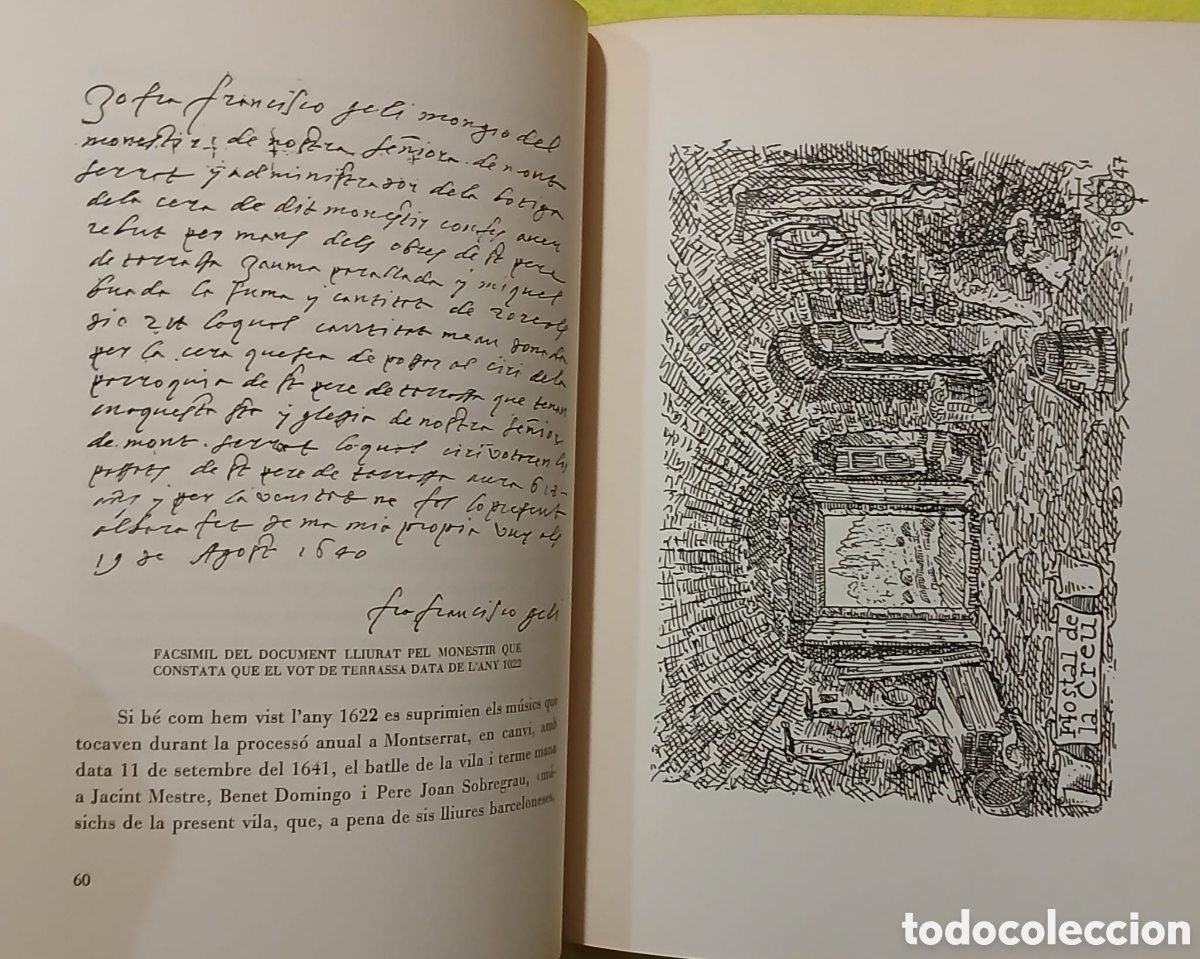 Jo fra francisco geli monço del
monestir de nostra señiora de mont
serrat y administrador dela botiga
dela cera de dit monestir confes auer
rebut per mans dels obres de st pere
de tarrassa Jauma parallada y miquel
buada la suma y cantitat de
loqual cantitat me an donada
per la cera quesea de posar al ciri dela
parroquia de st pere de tarrassa que tenen
enaquesta sta yglesia de nostra señior
de mont serrat loqual ciri votaren los
passats de st pere de tarrassa aura 612
añs y per la veritat ne fas lo present
albara fet de ma mia propia vuy als
19 de Agost 1640
fra francisco geli
FACSIMIL DEL DOCUMENT LLIURAT PEL MONESTIR QUE
CONSTATA QUE EL VOT DE TERRASSA DATA DE L'ANY 1022
Si bé com hem vist l'any 1622 es suprimien els músics que
tocaven durant la processó anual a Montserrat, en canvi, amb
data 11 de setembre del 1641, el batlle de la vila i terme mana
a Jacint Mestre, Benet Domingo i Pere Joan Sobregrau, «mú-
sichs de la present vila, que, a pena de sis lliures barceloneses,
60
Hostal de
la Creu
1947
todocoleccion